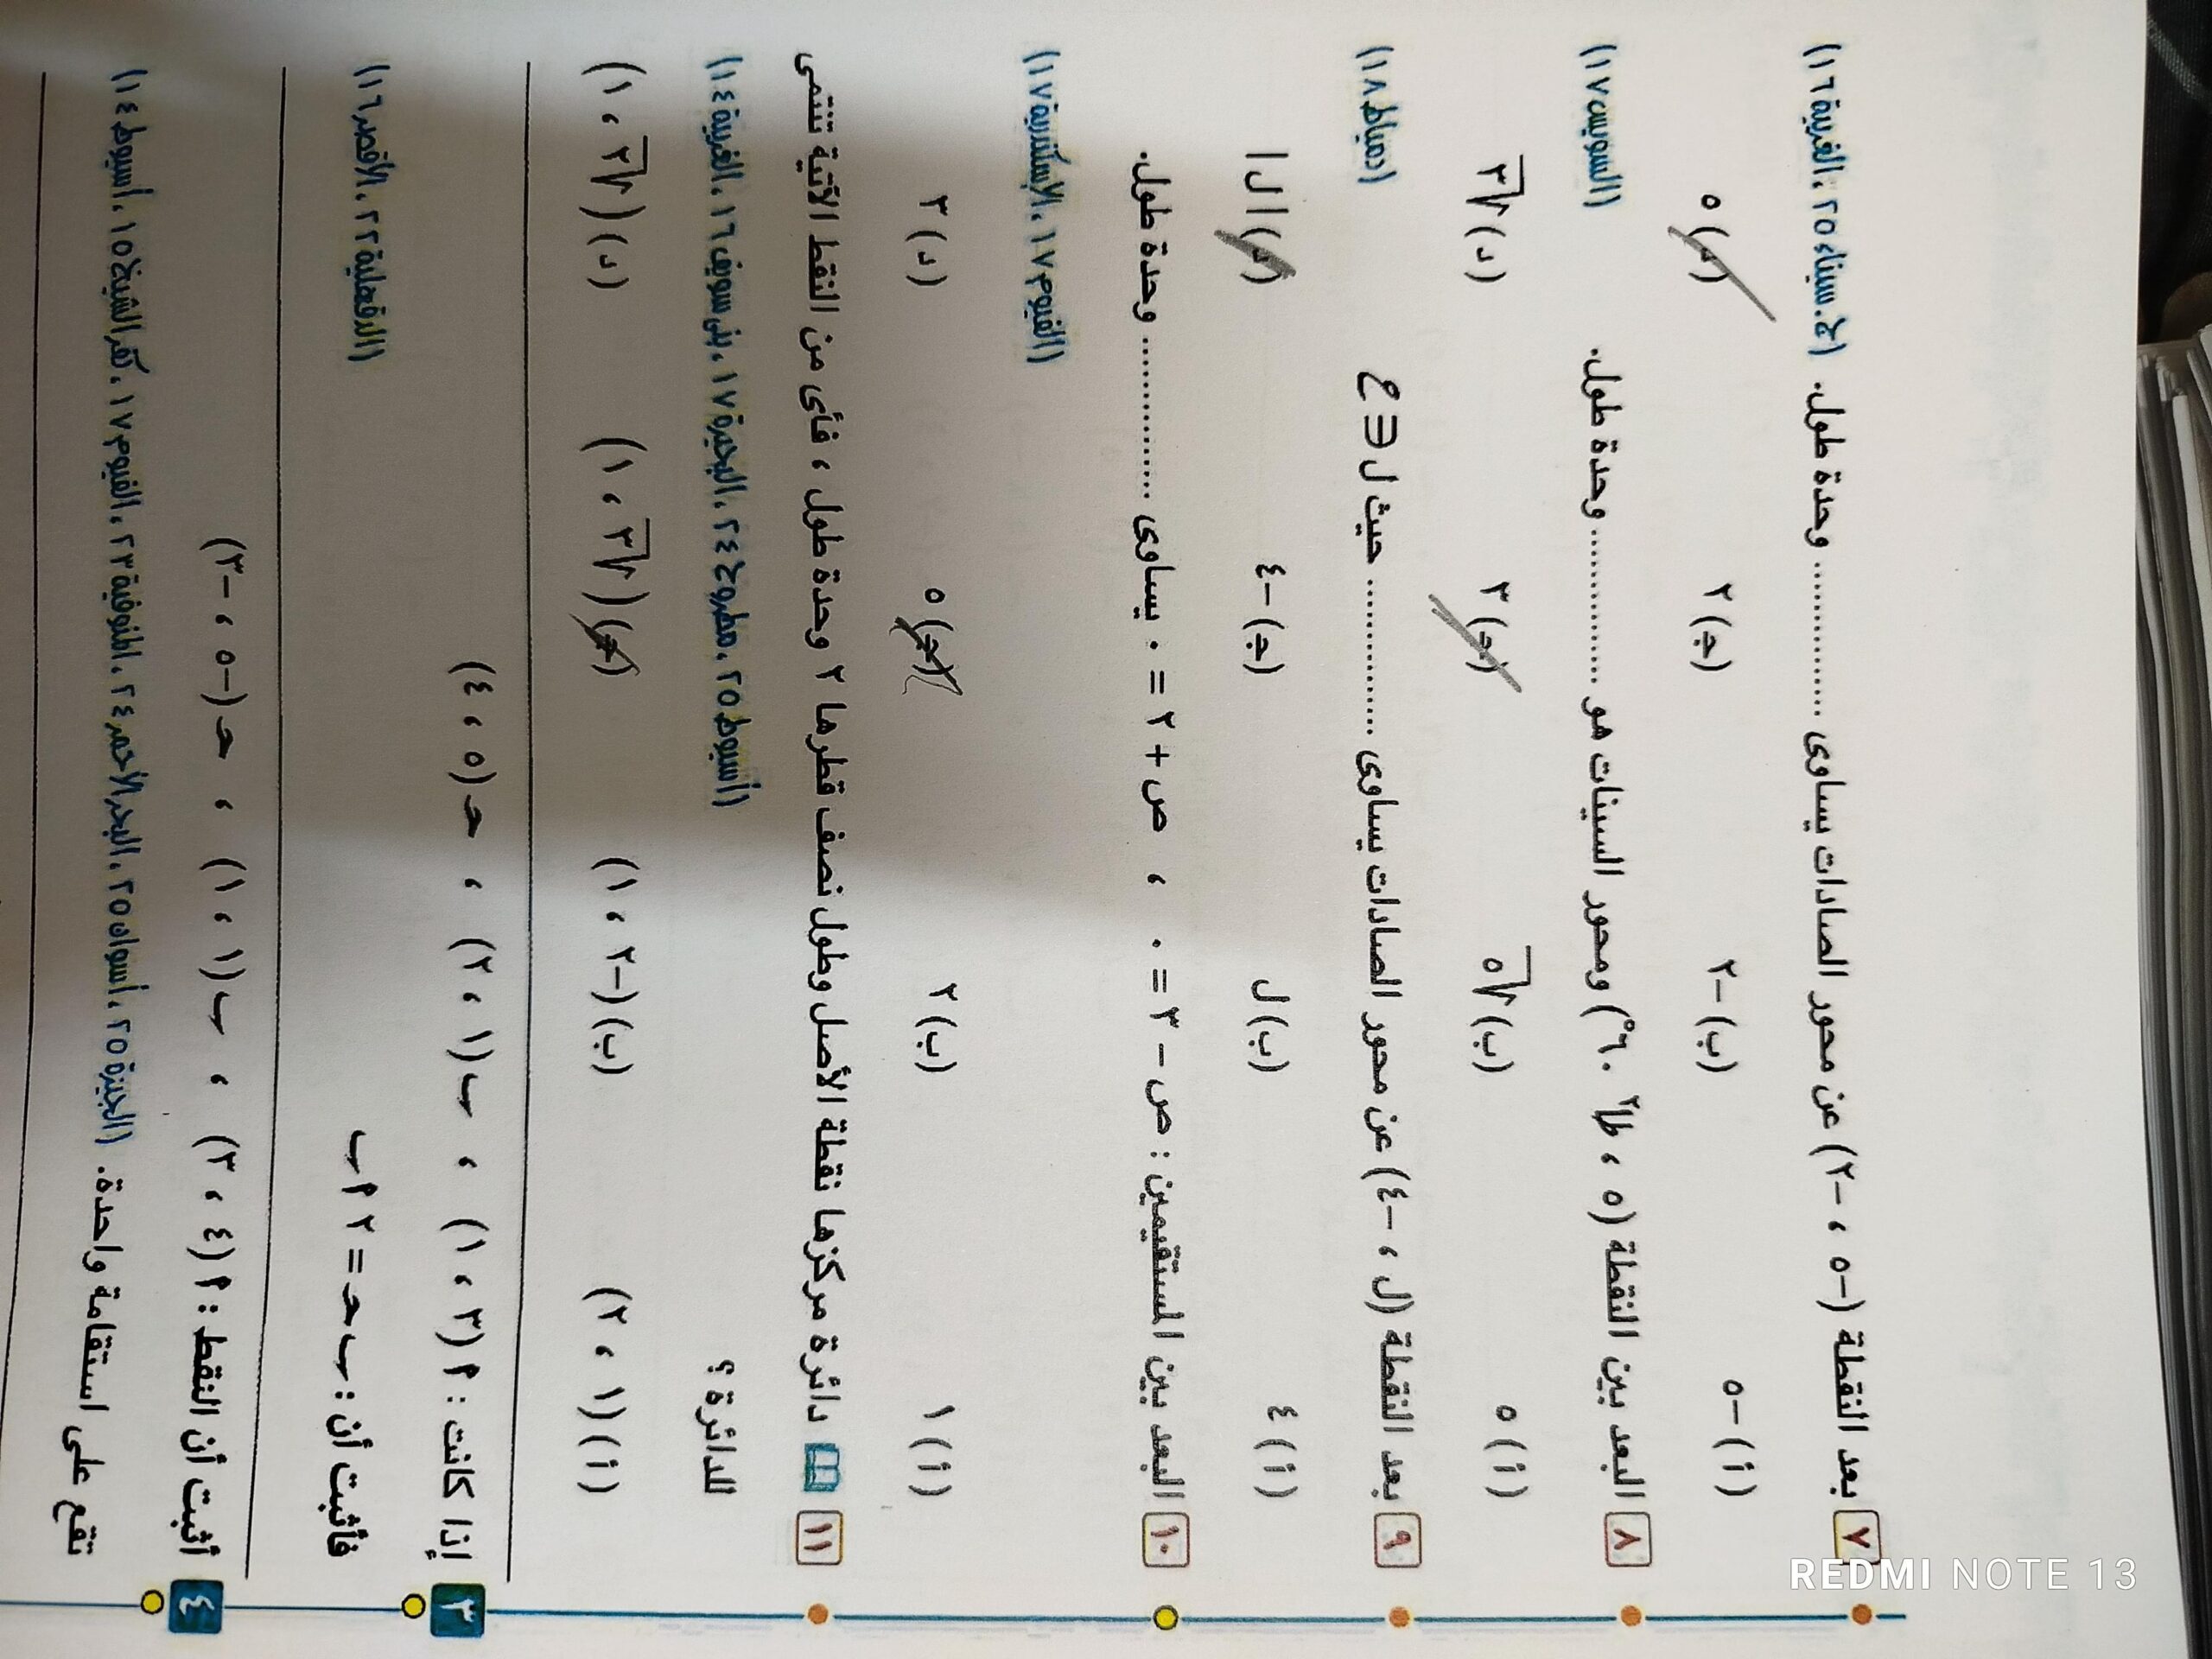 ٧ بعد النقطة (–٥ ، –٢) عن محور الصادات يساوى .............. وحدة طول. (ج. سيناء ٢٥، الغربية ١٦)
(أ) –٥ (ب) –٢ (ج) ٢ (د) ٥
٨ البعد بين النقطة (٥ ، طا٢ ٦٠°) ومحور السينات هو .............. وحدة طول. (السويس ١٧)
(أ) ٥ (ب) √٥ (ج) ٣ (د) √٣
٩ بعد النقطة (ل ، –٤) عن محور الصادات يساوى .............. حيث ل ∈ ح (دمياط ١٨)
(أ) ٤ (ب) ل (ج) –٤ (د) |ل|
١٠ البعد بين المستقيمين : ص – ٣ = ٠ ، ص + ٢ = ٠ يساوى .............. وحدة طول.
(الفيوم ١٧، الإسكندرية ١٧)
(أ) ١ (ب) ٢ (ج) ٥ (د) ٣
١١ دائرة مركزها نقطة الأصل وطول نصف قطرها ٢ وحدة طول ، فأى من النقط الآتية تنتمى
للدائرة ؟ (أسيوط ٢٥، مطروح ٢٤، البحيرة ١٧، بنى سويف ١٦، الغربية ١٤)
(أ) (١ ، ٢) (ب) (–٢ ، ١) (ج) (√٣ ، ١) (د) (√٢ ، ١)
٣ إذا كانت : ‏م (٣ ، ١) ، ب (١ ، ٢) ، حـ (٥ ، ٤)
فأثبت أن : ب حـ = ٢ م ب (الدقهلية ٢٢، الأقصر ١٦)
٤ أثبت أن النقط : م (٤ ، ٣) ، ب (١ ، ١) ، حـ (–٥ ، –٣)
تقع على استقامة واحدة. (الجيزة ٢٥، أسوان ٢٥، البحر الأحمر ٢٤، المنوفية ٢٣، الفيوم ١٧، كفر الشيخ ١٥، أسيوط ١٤)
REDMI NOTE 13